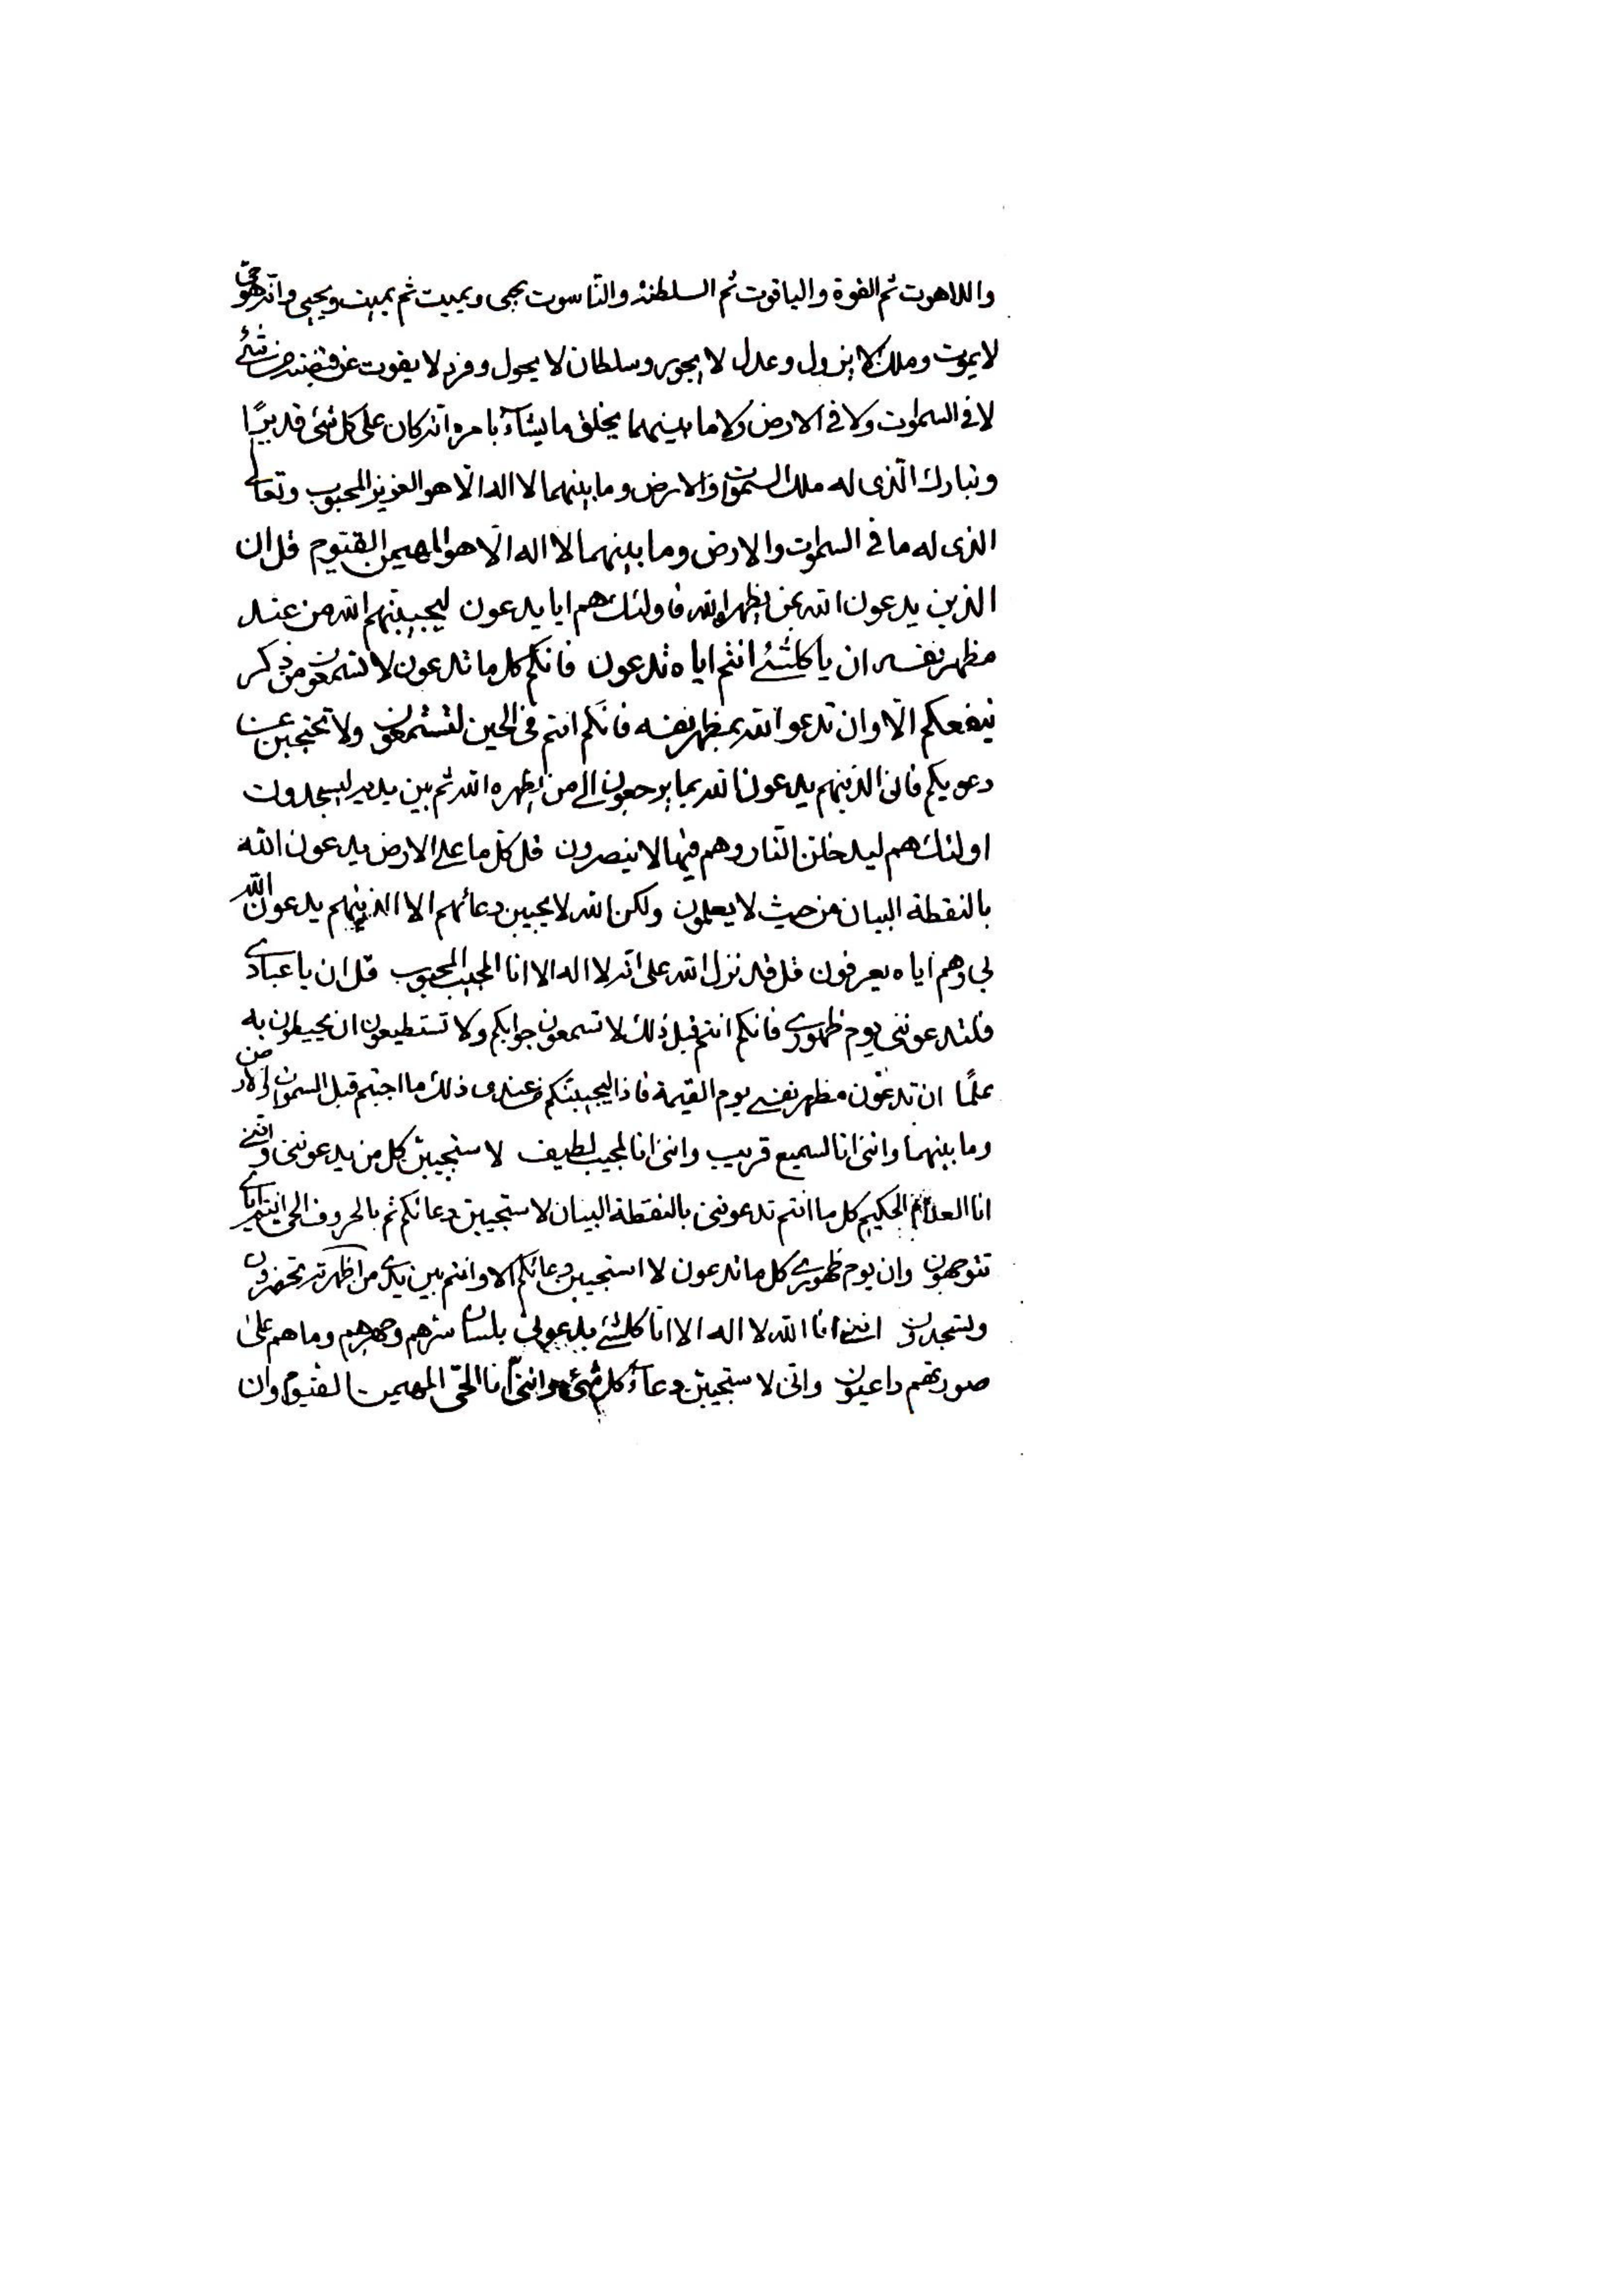 واللاهوت ثم القوة والياقوت ثم السلطنة والناسوت يحيى ويميت ثم يميت ويحيى وانه هو حى
لا يموت وملك لا يزول وعدل لا يجور وسلطان لا يحول وفرد لا يفوت عن قبضته من شئ
لا فى السموات ولا فى الارض ولا ما بينهما يخلق ما يشآء بامره انه كان على كل شئ قديرًا
وتبارك الّذى له ملك السموات والارض وما بينهما لا اله الّا هو العزيز المحبوب وتعالى
الذى له ما فى السموات والارض وما بينهما لا اله الّا هو المهيمن القيّوم قل ان
الذين يدعون الله بمن يظهره الله فاولئك هم ايا يدعون ليجيبنّهم الله من عند
مظهر نفسه ان يا كلشئ انتم اياه تدعون فانكم كل ما تدعون لا تسمعون من ذكر
ينفعكم الّا وان تدعو الله بمظهر نفسه فانكم انتم فى الحين لتستمعون ولا تحتجبن عن
دعويكم فان الذينهم يدعون الله بما يرجعون الى من يظهره الله ثم بين يديه ليسجدون
اولئك هم ليدخلن النار وهم فيها لا ينصرون قل كل ما على الارض يدعون الله
بالنقطة البيان من حيث لا يعلمون ولكن الله لا يجيبن دعائهم الا الذينهم يدعون الله
بى وهم اياه يعرفون قل قد نزل الله على انه لا اله الا انا المجيب المحبوب قل ان يا عبادى
فلتدعوننى يوم ظهورى فانكم انتم قبل ذلك لا تسمعون جوابكم ولا تستطيعون ان يحيطون به
علمًا ان تدعون مظهر نفسى يوم القيمة فاذا ليجيبنّكم من عندى ذلك ما اجبتم قبل السموات والارض
وما بينهما واننى انا السميع قريب واننى انا المجيب لطيف لاستجيبن كل من يدعوننى واننى
انا العلام الحكيم كل ما انتم تدعوننى بالنقطة البيان لاستجيبن دعائكم ثم بالحروف الحى انتم اياى
تتوجهون وان يوم ظهورى كل ما تدعون لا استجيبن دعائكم الا وانتم بين يدى من اظهرته تحضرون
ولتسجدون اننى انا الله لا اله الا انا كلشئ يدعونى بلسان سرهم وجهرهم وما هم على
صورتهم داعيون وانى لاستجيبن دعآء كل شئ واننى انا الحىّ المهيمن القيوم وان